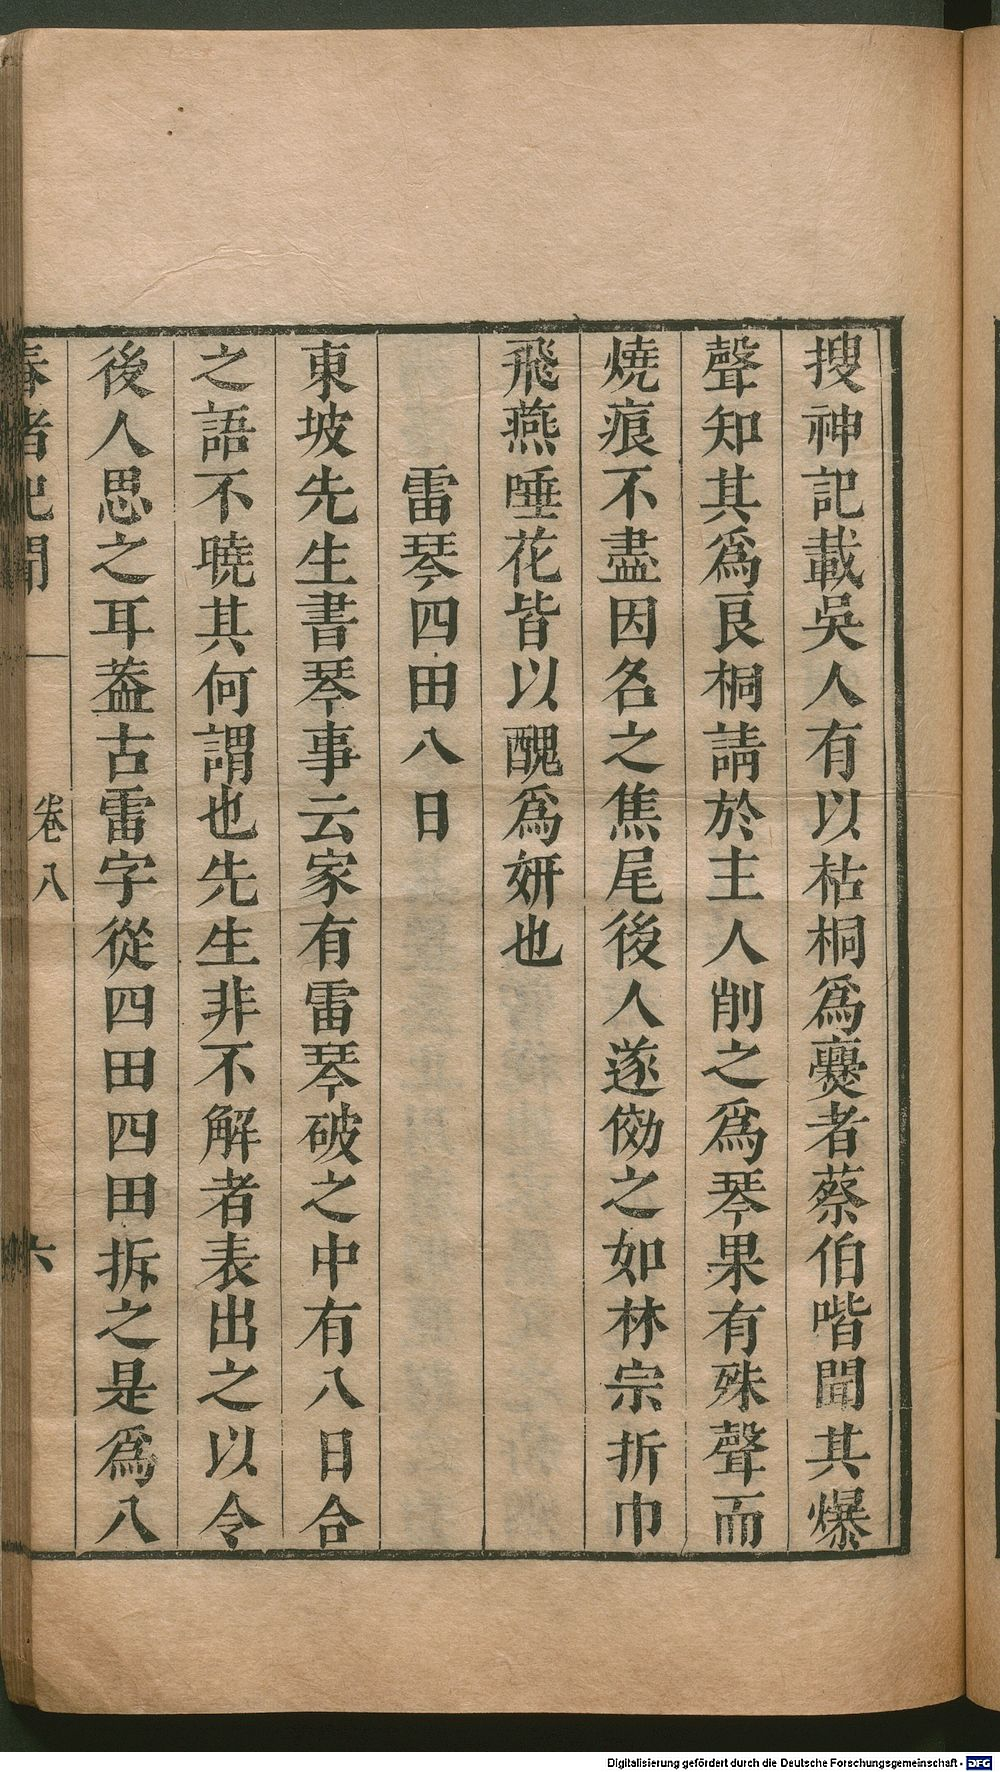 搜神記載吳人有以枯桐為爨者蔡伯喈聞其爆
聲知其為良桐請於主人削之為琴果有殊聲而
燒痕不盡因名之焦尾後人遂傚之如林宗折巾
飛燕唾花皆以醜為妍也
雷琴四田八日
東坡先生書琴事云家有雷琴破之中有八日合
之語不曉其何謂也先生非不解者表出之以令
後人思之耳葢古雷字從四田四田拆之是為八
春渚紀聞
卷八
六
Digitalisierung gefördert durch die Deutsche Forschungsgemeinschaft - DFG